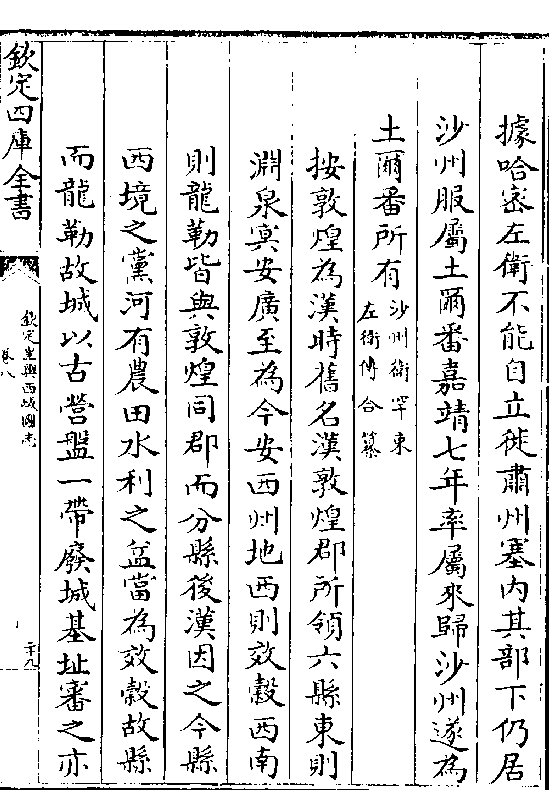 據哈宻左衛不能自立徙肅州塞内其部下仍居
沙州服屬土爾番嘉靖七年率屬來歸沙州遂為
土爾番所有沙州衛罕東
左衛傳合纂
按敦煌為漢時舊名漢敦煌郡所領六縣東則
淵泉㝠安廣至為今安西州地西則效穀西南
則龍勒皆與敦煌同郡而分縣後漢因之今縣
西境之黨河有農田水利之益當為效穀故縣
而龍勒故城以古營盤一帶廢城基址審之亦
欽定四庫全書
欽定皇輿西域圖志
卷八
十九